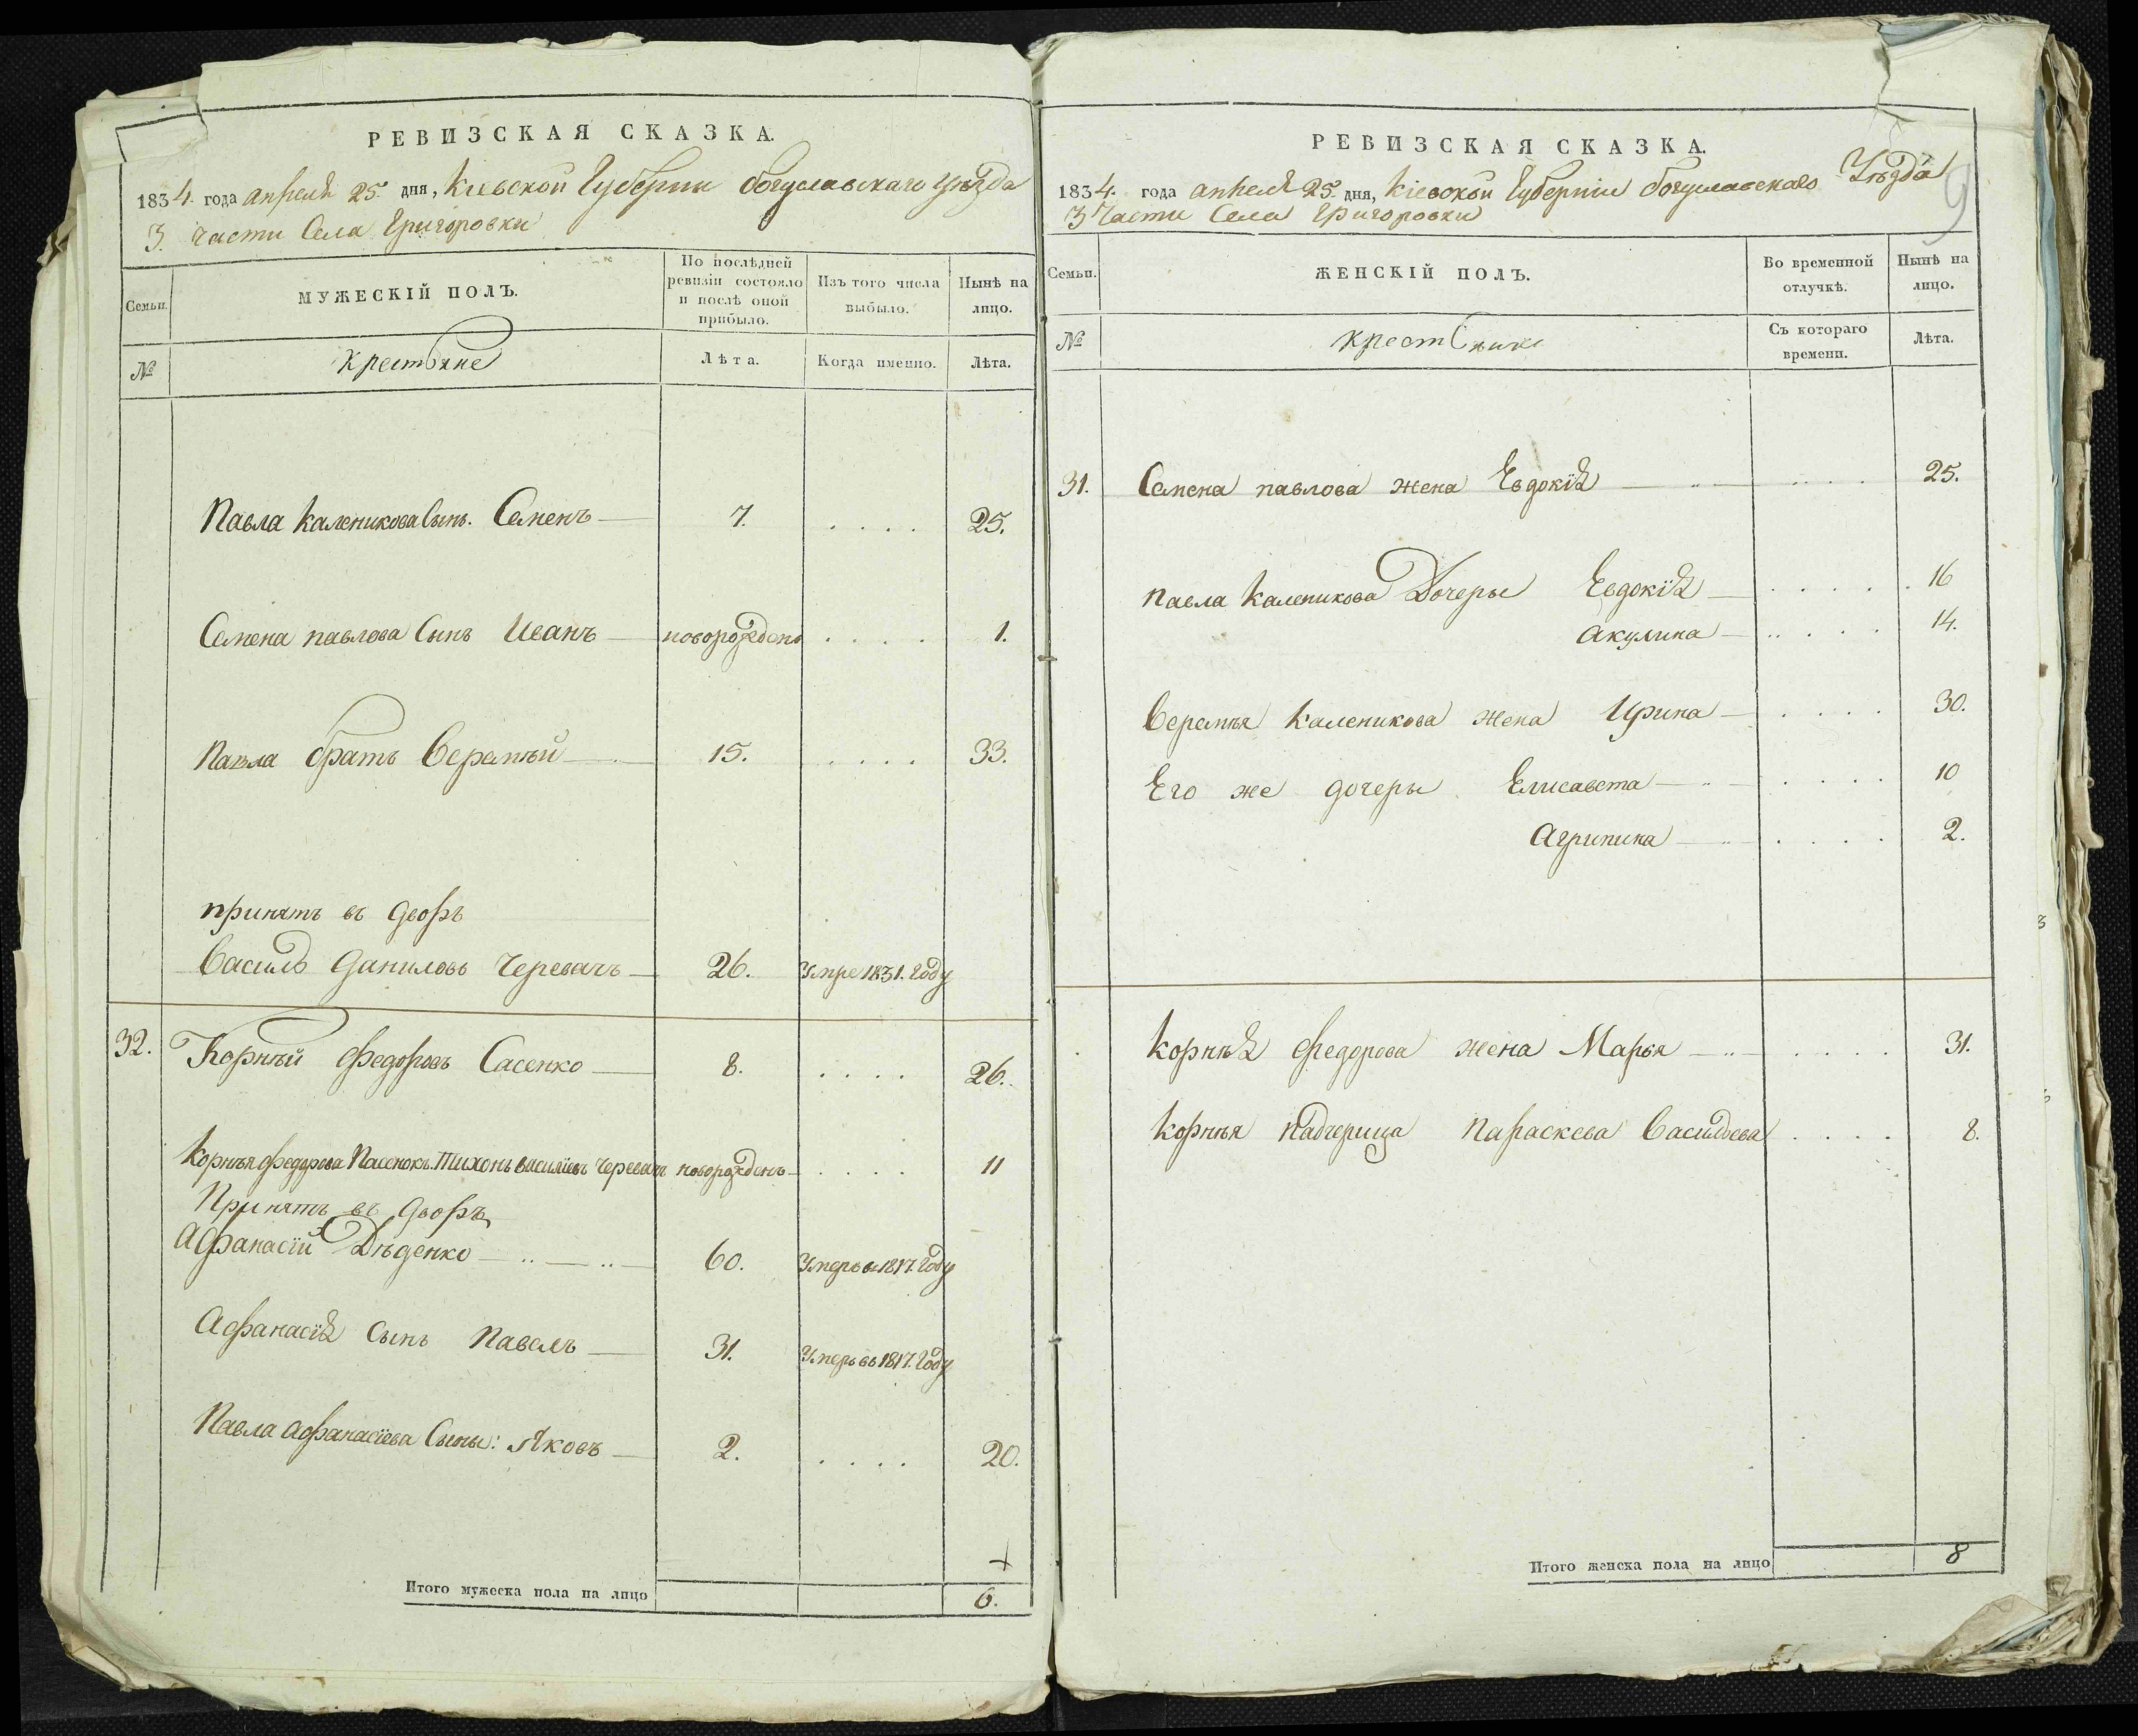 РЕВИЗСКАЯ СКАЗКА.
1834. года апреля 25. дня, Киевской Губернии богуславскаго уѣзда
3. части Села Григоровки
Семьи.
МУЖЕСКІЙ ПОЛЪ.
По послѣдней ревизіи состояло и послѣ оной прибыло.
Изъ того числа выбыло.
Нынѣ на лицо.
№
крестьяне
Лѣта.
Когда именно.
Лѣта.
Павла Каленикова Сынъ. Семенъ 7. .... 25.
Семена павлова Сынъ Иванъ новорожденъ .... 1.
Павла братъ Веремѣй 15. .... 33.
принятъ въ дворъ
Василь даниловъ Черевачъ 26. Умре 1831. Году
32. Корнѣй Федоровъ Сасенко 8. .... 26.
Корнѣя Федорова Пасенокъ. Тихонъ Василіевъ Черевач новорожденъ .... 11
Принятъ въ дворъ
Афанасій Дѣденко 60. Умеръ в 1817. Году
Афанасія Сынъ Павелъ 31. Умеръ въ 1817. Году
Павла Афанасіева Сыны: Яковъ 2. .... 20.
Итого мужеска пола на лицо 6.
РЕВИЗСКАЯ СКАЗКА.
1834. года апреля 25. дня, Кіевской Губерніи богуславскаго Уѣзда
3 Части Села Григоровки
9
Семьи.
ЖЕНСКІЙ ПОЛЪ.
Во временной отлучкѣ.
Нынѣ на лицо.
№
Съ котораго времени.
Лѣта.
31. Семена павлова жена Евдокія .... 25.
павла Каленикова Дочеры Евдокія .... 16
Акулина .... 14.
Веремѣя Каленикова жена Ирина .... 30.
Его же дочеры Елисавета .... 10
Агрипина .... 2.
Корнѣя Федорова жена Марья .... 31.
Корнѣя Падчерица Параскева Васильева .... 8.
Итого женска пола на лицо 8